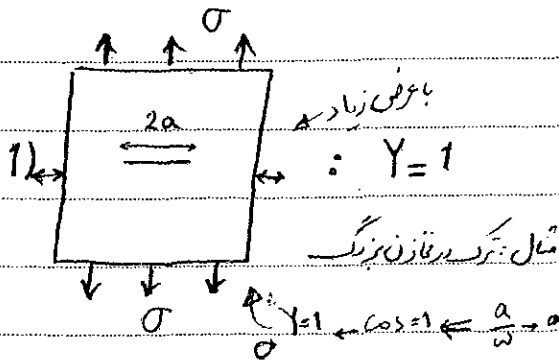 σ
با عرض زیاد
2a
1) : Y = 1
مثال: ترک در مخازن بزرگ
σ Y=1 ← cos=1 ⇐ a/w → 0
σ